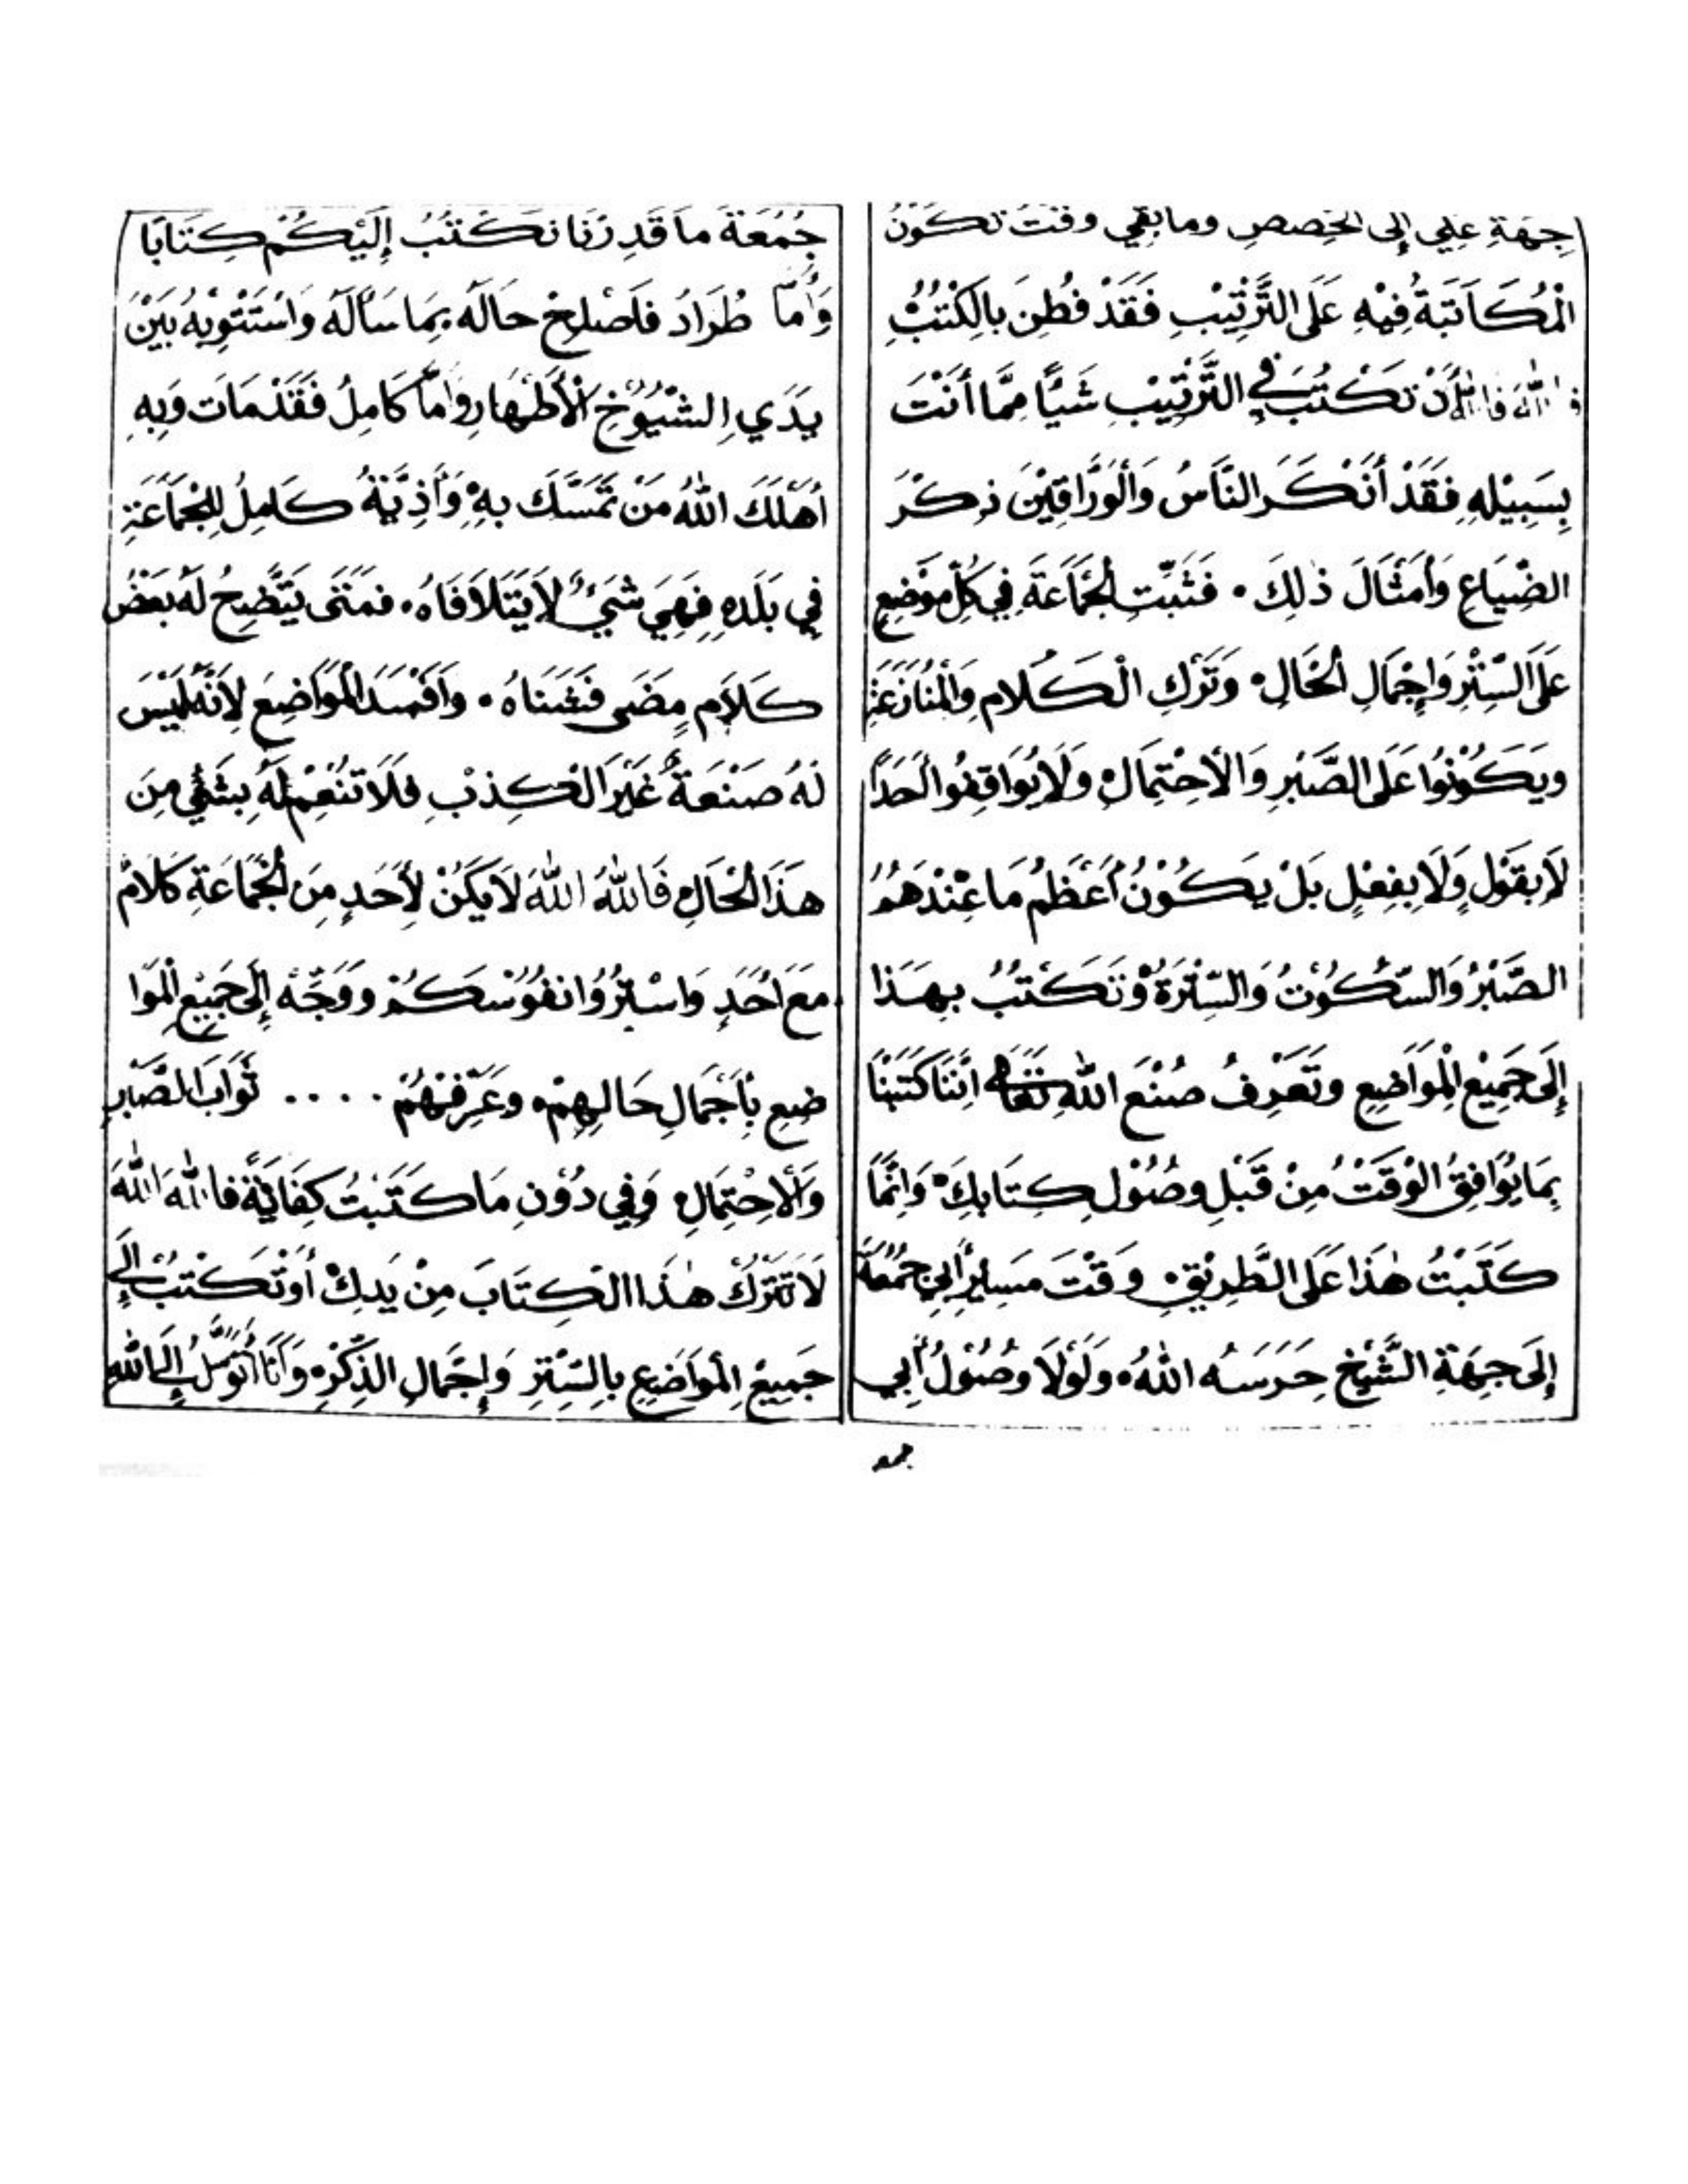 جِهَةِ عَلِي إِلَى الْحِصَصِ وما بَقِي وَقْتَ تَكُونُ
الْمُكَاتَبَةُ فِيْهِ عَلَى التَّرْتِيْبِ فَقَدْ فُطِنَ بِالكُتُبِ
فاللهَ فاللهَ أَنْ تَكْتُبَ فِي التَّرْتِيْبِ شَيْئًا مِمَّا أَنْتَ
بِسَبِيْلِهِ فَقَدْ أَنْكَرَ النَّاسُ وَالْوَرَّاقِيْنَ ذِكْرَ
الضِّيَاعِ وَأَمْثَالَ ذٰلِكَ ۰ فَثَبِّتِ الْجَمَاعَةَ فِي كُلِّ مَوْضِعٍ
عَلَى السِّتْرِ وَإِجْمَالِ الْحَالِ ۰ وَتَرْكِ الْكَلَامِ وَالْمُنَازَعَةِ
ويَكُوْنُوْا عَلَى الصَّبْرِ وَالْاحْتِمَالِ وَلَا يُوَاقِفُوا أَحَدًا
لَا بِقَوْلٍ وَلَا بِفِعْلٍ بَلْ يَكُوْنُ أَعْظَمُ مَا عِنْدَهُمُ
الصَّبْرُ وَالسُّكُوْتُ وَالسِّتْرَةُ وَتَكْتُبُ بِهَذَا
إِلَى جَمِيْعِ الْمَوَاضِعِ وتَعَرِفُ صُنْعَ اللهِ تَعَالَى إِنَّنَا كَتَبْنَا
بِمَا يُوَافِقُ الْوَقْتَ مِنْ قَبْلِ وصُوْلِ كِتَابِكَ ۰ وَإِنَّمَا
كَتَبْتُ هٰذَا عَلَى الطَّرِيْقِ ۰ وَقْتَ مَسِيرِ أَبِي جُمُعَةَ
إِلَى جِهَةِ الشَّيْخِ حَرَسَهُ اللهُ ۰ وَلَوْلَا وصُوْلُ أَبِي
جمعه
جُمُعَةَ مَا قَدِرْنَا نَكْتُبُ إِلَيْكُمْ كِتَابًا
وَأَمَّا طُرَادُ فَاصْلِحْ حَالَهُ بِمَا سَأَلَهُ وَاسْتَتْوِبْهُ بَيْنَ
يَدَيِ الشُّيُوْخِ الْأَطْهَارِ وَأَمَّا كَامِلُ فَقَدْ مَاتَ وَبِهِ
أَهْلَكَ اللهُ مَنْ تَمَسَّكَ بِهِ وَأَذِيَّةُ كَامِلُ لِلْجَمَاعَةِ
فِي بَلَدِهِ فَهِيَ شَيْءٌ لَا يَتَلَافَاهُ ۰ فَمَتَى يَتَّضِحُ لَهُ بَعْضُ
كَلَامٍ مَضَى فَشَنَاهُ ۰ وَأَفْسَدَ الْمَوَاضِعَ لِأَنَّهُ لَيْسَ
لَهُ صَنْعَةٌ غَيْرَ الْكِذْبِ فَلَا تَنْعَمْ لَهُ بِشَيْءٍ مِنَ
هَذَا الْحَالِ فَاللهُ اللهَ لَا يَكُنْ لِأَحَدٍ مِنَ الْجَمَاعَةِ كَلَامٌ
مَعَ أَحَدٍ وَاسْتِرُوْا نفُوْسَكُمْ وَوَجِّه إِلَى جَمِيْعِ الْمَوَا
ضِعِ بِإِجْمَالِ حَالِهِمْ ۰ وعَرِّفْهُمْ ..... ثَوَابَ الصَّبْرِ
وَالْاحْتِمَالِ وَفِي دُوْنِ مَا كَتَبْتُ كِفَايَةٌ فاللهَ اللهَ
لَا تَتْرُكْ هٰذَا الكِتَابَ مِنْ يَدِكْ أَوْ تَكْتُبُ إِلَى
جَمِيْعِ الْمَوَاضِعِ بِالسِّتِرِ وَإِجْمَالِ الذِّكْرِ ۰ وَأَنَا أَتَوَسَّلُ إِلَى اللهِ